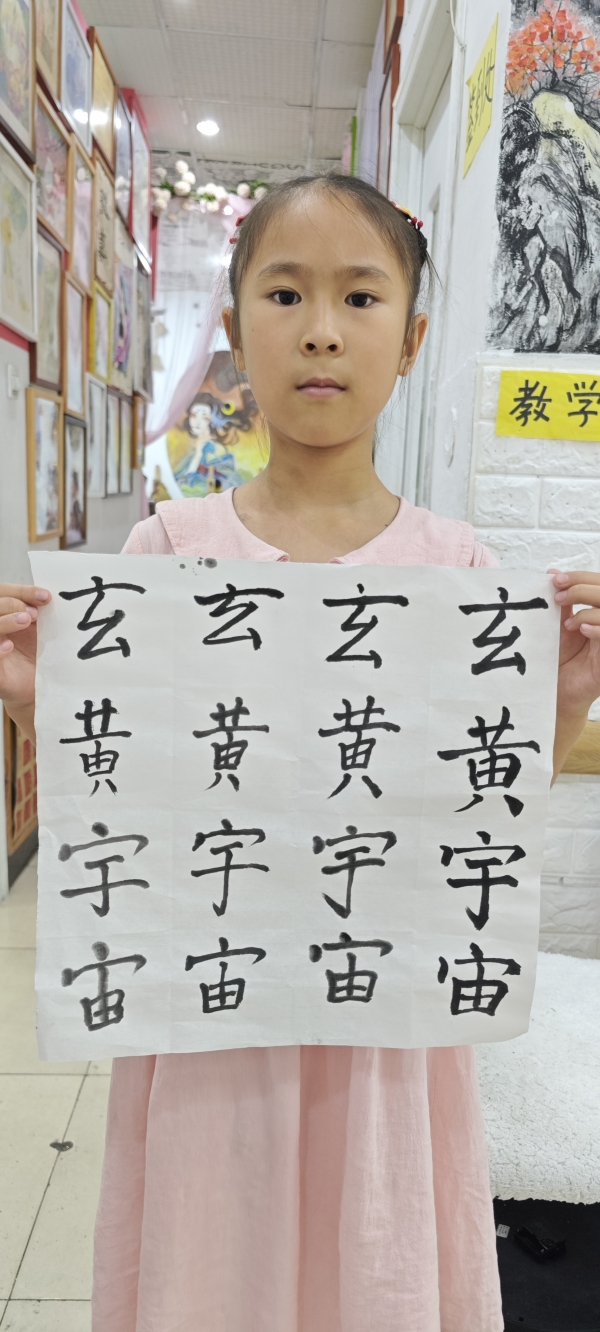 教学
玄玄玄玄
黄黄黄黄
宇宇宇宇
宙宙宙宙